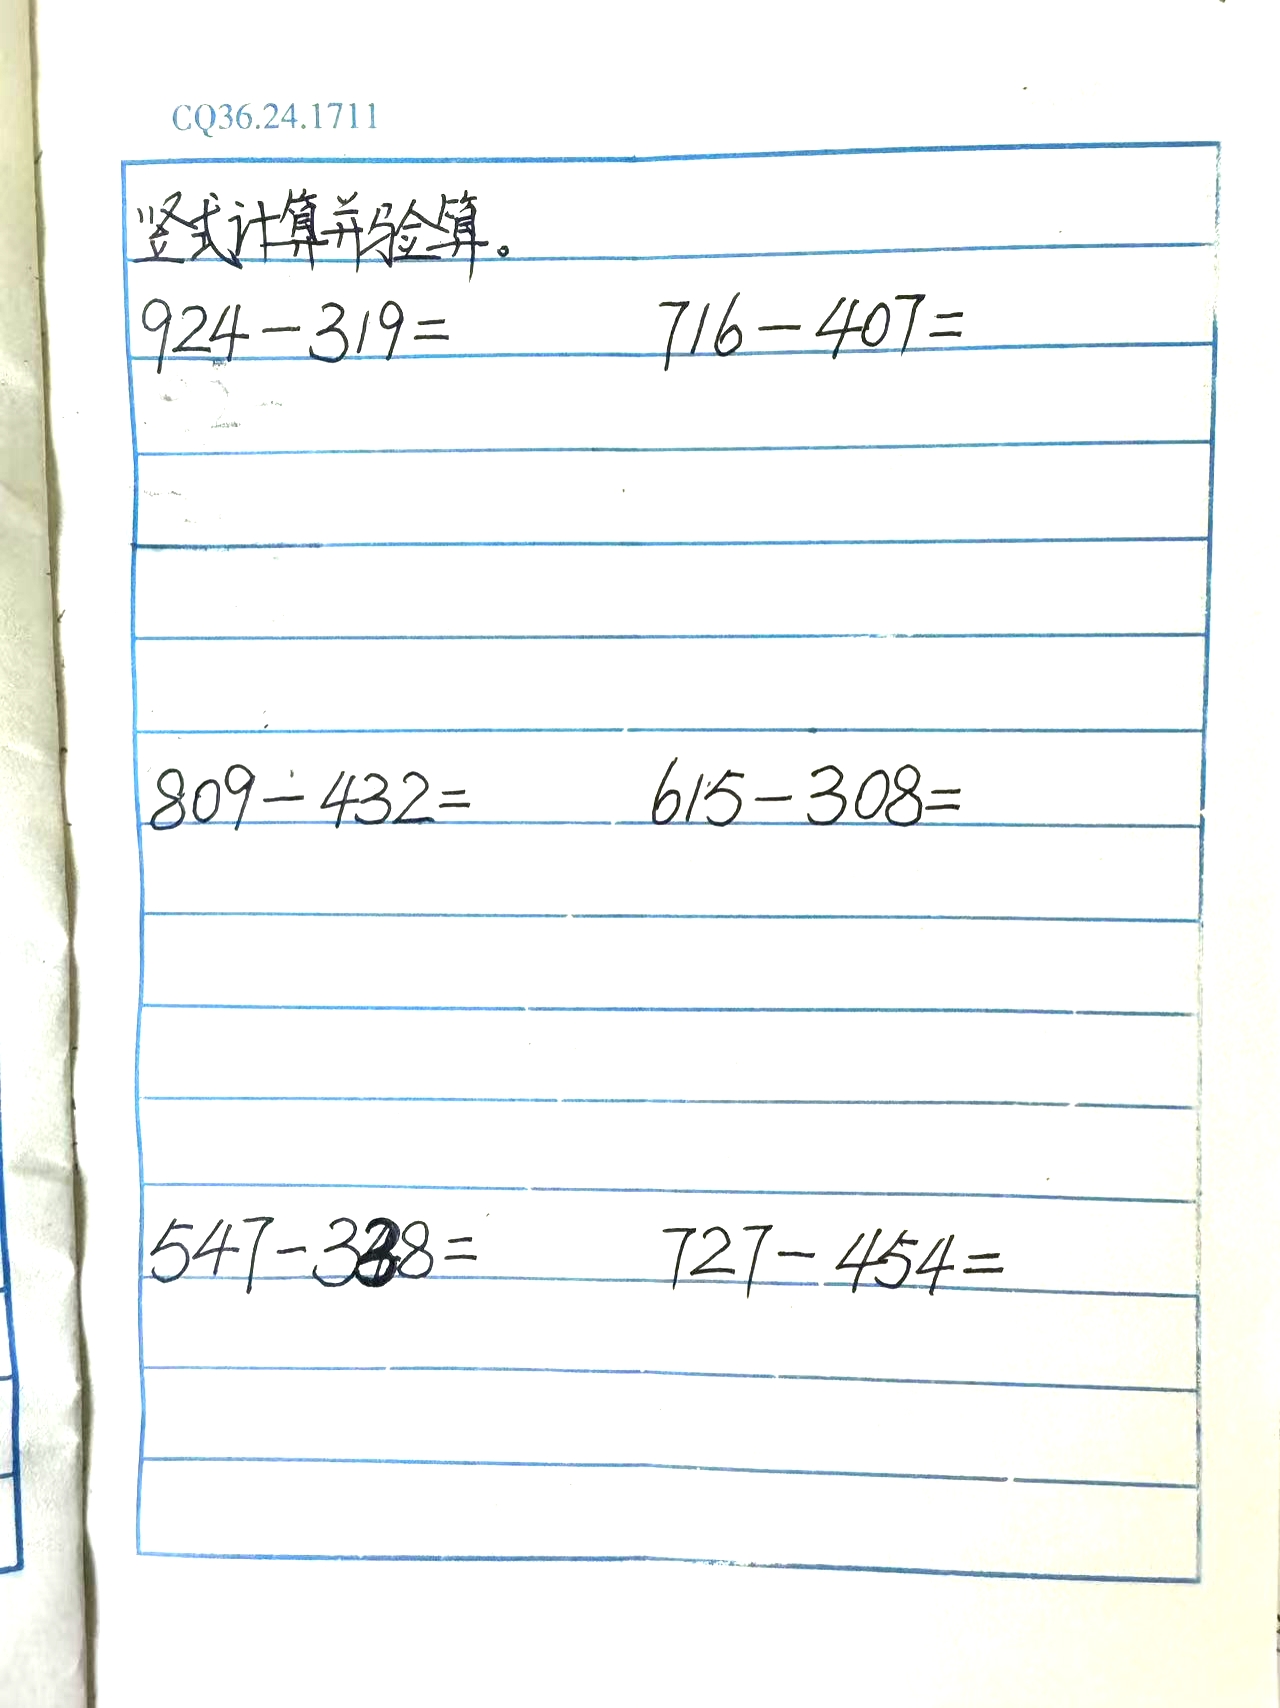 CQ36.24.1711
竖式计算并验算。
924-319= 716-407=
809-432= 615-308=
547-338= 727-454=